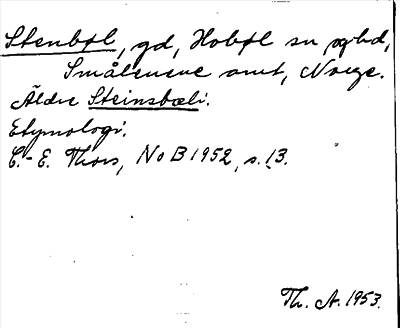 Stenbøl, gd, Hobøl sn og hd,
Smålenene amt, Norge.
Äldre Steinsbæli.
Etymologi.
C.-E. Thors, NoB 1952, s. 13.
Th. A. 1953.